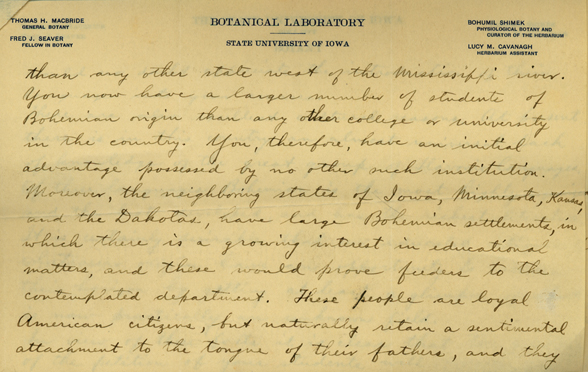 THOMAS H. MACBRIDE
GENERAL BOTANY
FRED J. SEAVER
FELLOW IN BOTANY
BOTANICAL LABORATORY
STATE UNIVERSITY OF IOWA
BOHUMIL SHIMEK
PHYSIOLOGICAL BOTANY AND
CURATOR OF THE HERBARIUM
LUCY M. CAVANAGH
HERBARIUM ASSISTANT
than any other state west of the Mississippi river.
You now have a larger number of students of
Bohemian origin than any other college or university
in the country. You, therefore, have an initial
advantage possessed by no other such institution.
Moreover, the neighboring states of Iowa, Minnesota, Kansas,
and the Dakotas, have large Bohemian settlements, in
which there is a growing interest in educational
matters, and these would prove feeders to the
contemplated department. These people are loyal
American citizens, but naturally retain a sentimental
attachment to the tongue of their fathers, and they